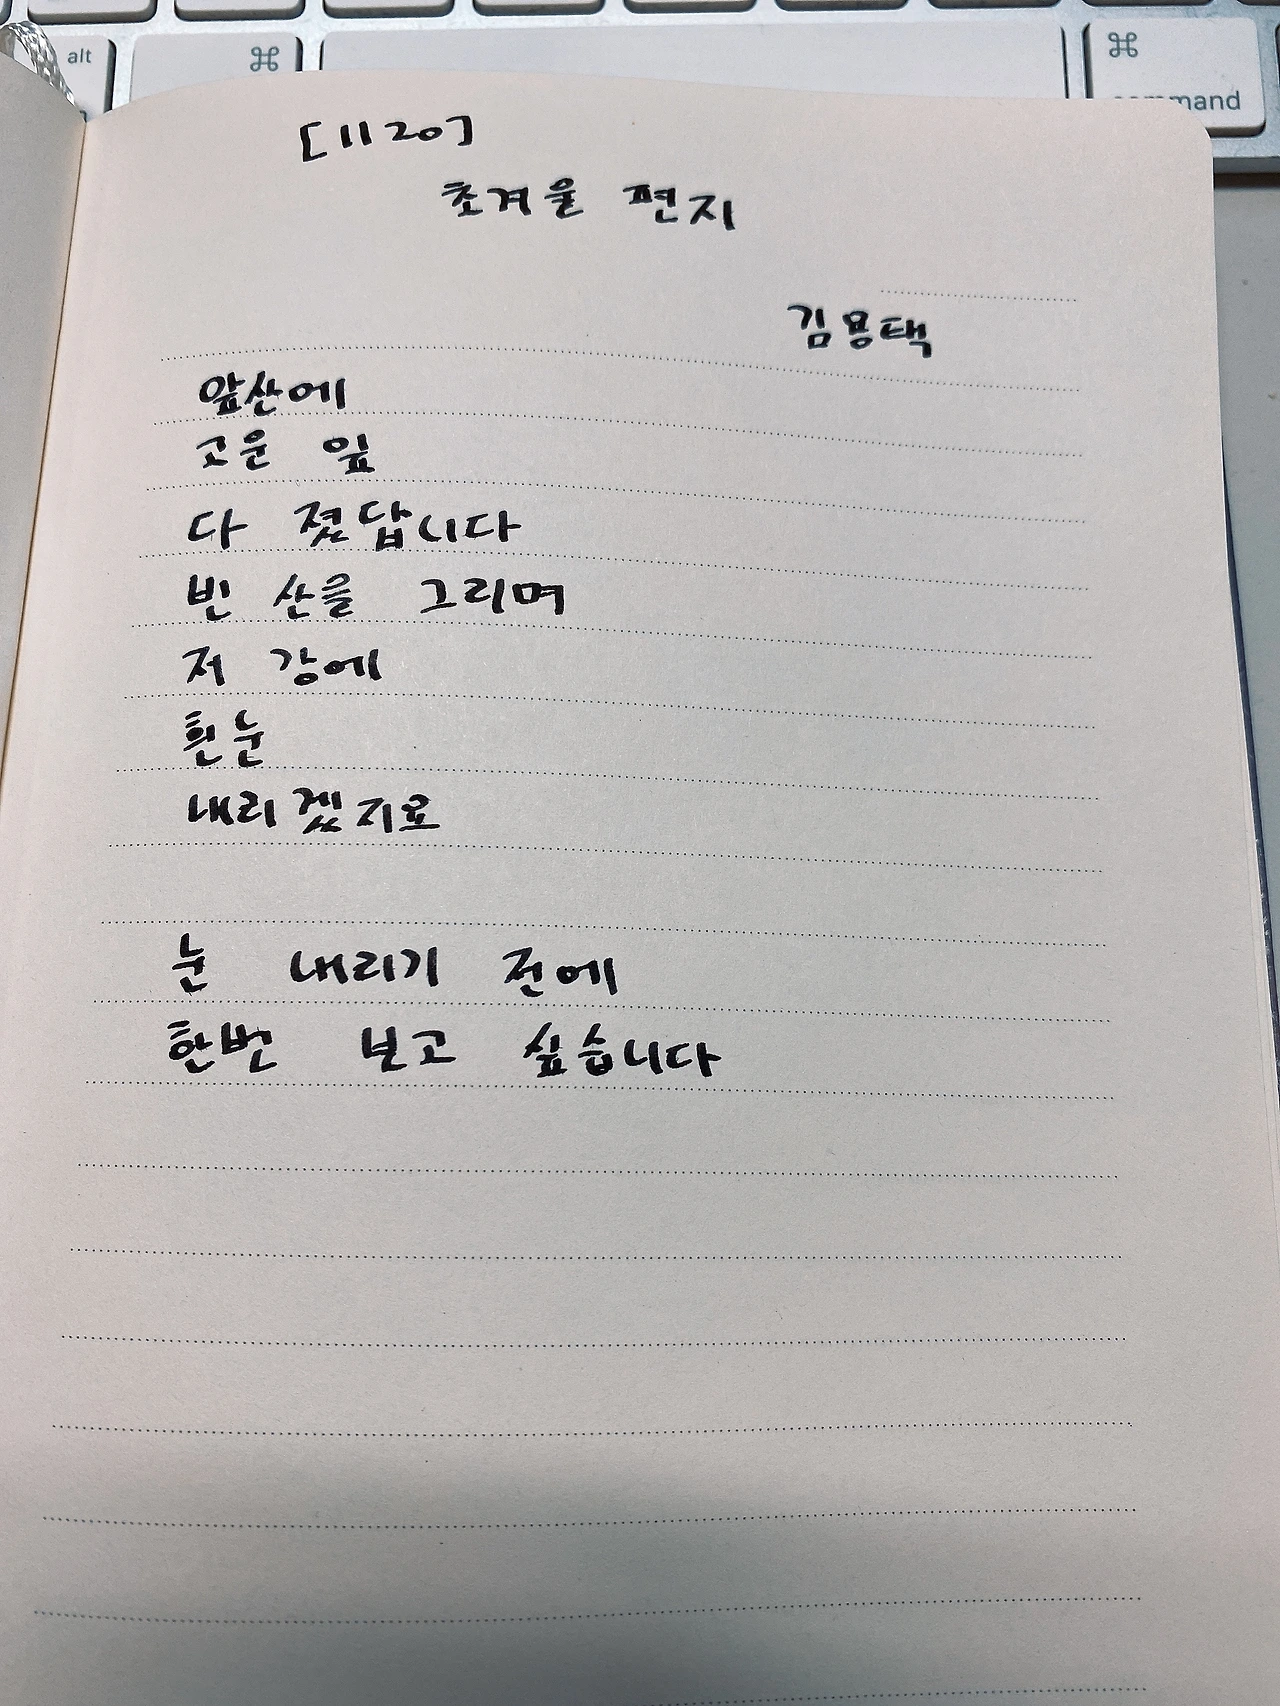 alt
⌘
⌘
command
[1120]
초겨울 편지
김용택
앞산에
고운 잎
다 졌답니다
빈 산을 그리며
저 강에
흰눈
내리겠지요
눈 내리기 전에
한번 보고 싶습니다